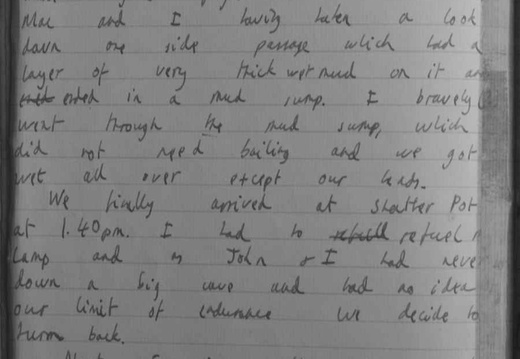 Mac and I having taken a look
down one side passage which had a
layer of very thick wet mud on it an
ended in a mud sump. I bravely
went through the mud sump, which
did not need bailing and we got
wet all over except our heads.
We finally arrived at Shatter Pot
at 1.40pm. I had to refuel
lamp and as John & I had never
down a big cave and had no idea
our limit of endurance we decide to
turn back.